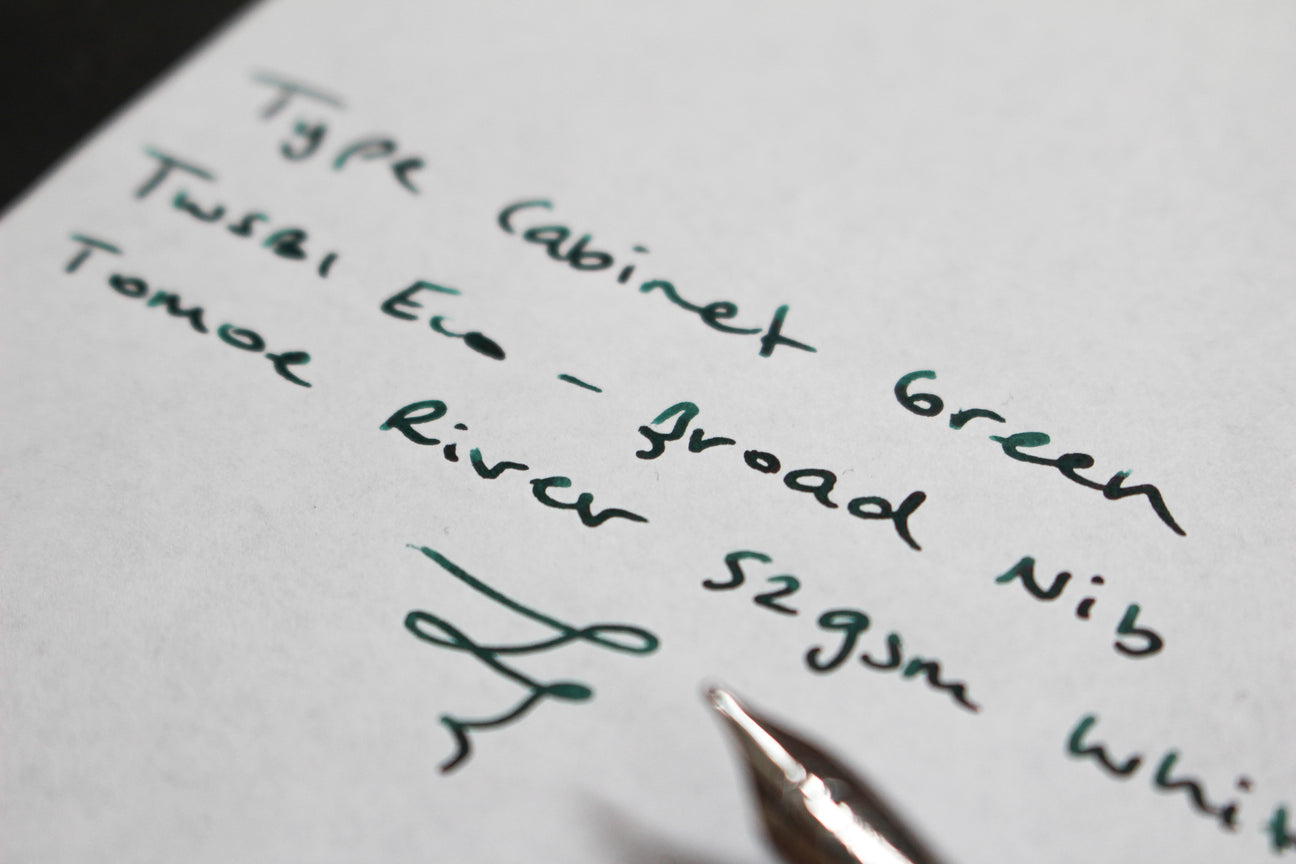 Type Cabinet Green
TWSBI Eco - Broad Nib
Tomoe River 52gsm Whit